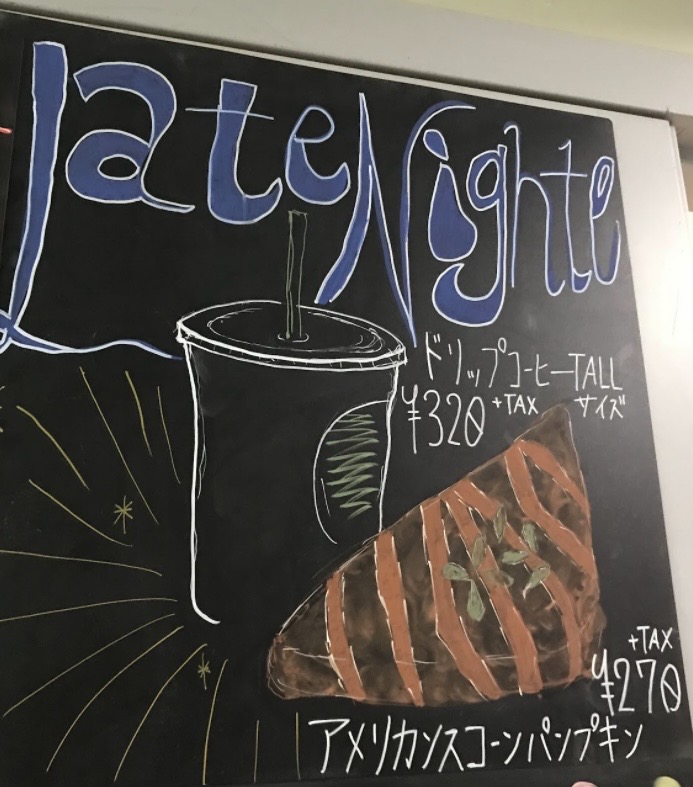 Late Nighte
ドリップコーヒーTALL
¥320 +TAX サイズ
+TAX
¥270
アメリカンスコーンパンプキン